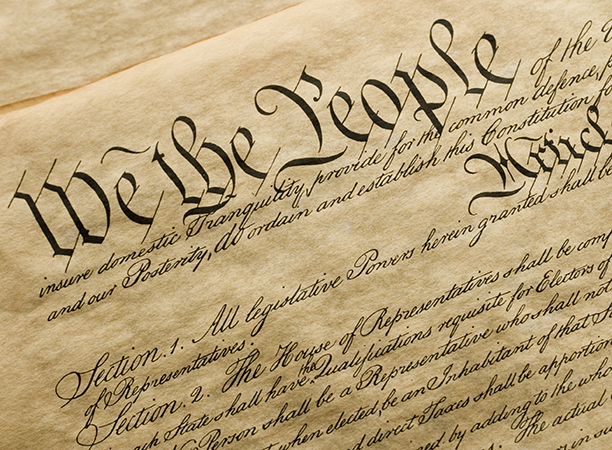 We the People of the U
insure domestic Tranquility, provide for the common defence, p
and our Posterity, do ordain and establish this Constitution fo
Article
Section. 1. All legislative Powers herein granted shall be
of Representatives.
Section. 2. The House of Representatives shall be comp
each State shall have the Qualifications requisite for Electors of
No Person shall be a Representative who shall not
when elected, be an Inhabitant of that S
and direct Taxes shall be apportion
by adding to the who
The actual